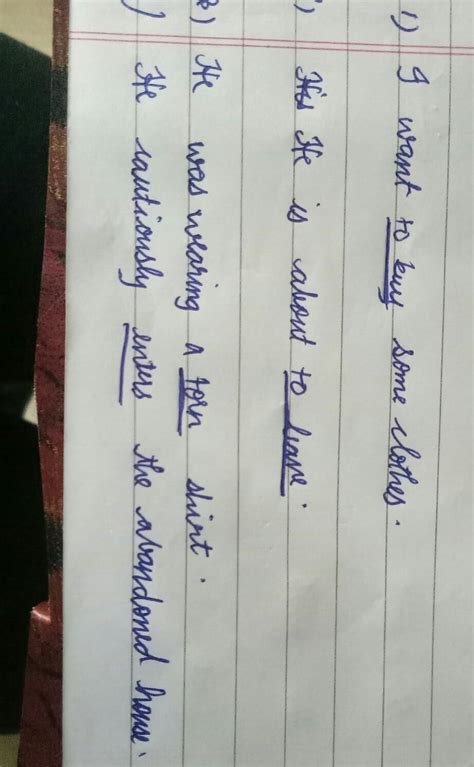 1) I want to buy some clothes.
) His He is about to leave.
) He was wearing a torn shirt.
) He cautiously enters the abandoned house.